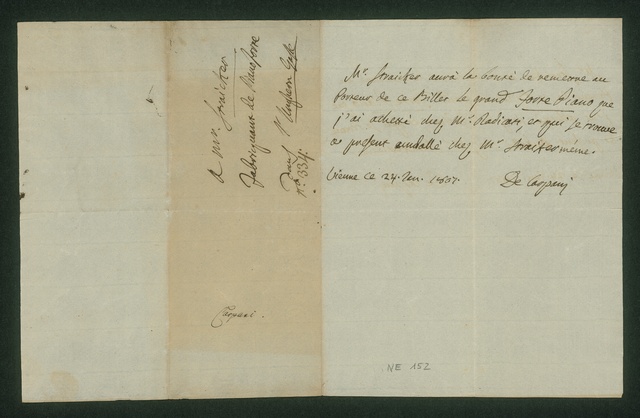 Mr. Straicher aura la bonté de remettre au
Porteur de ce Billet le grand Forte Piano que
j'ai acheté chez Mr. Radicati, et qui se trouve
a present chez Mr. Straicher même.
Vienne ce 24. 1807.
De Carpani
A Mr. Straicher
fabriquant de Pianoforte
Dans l'Unghern Gasse
No. 334.
Carpani.
NE 152